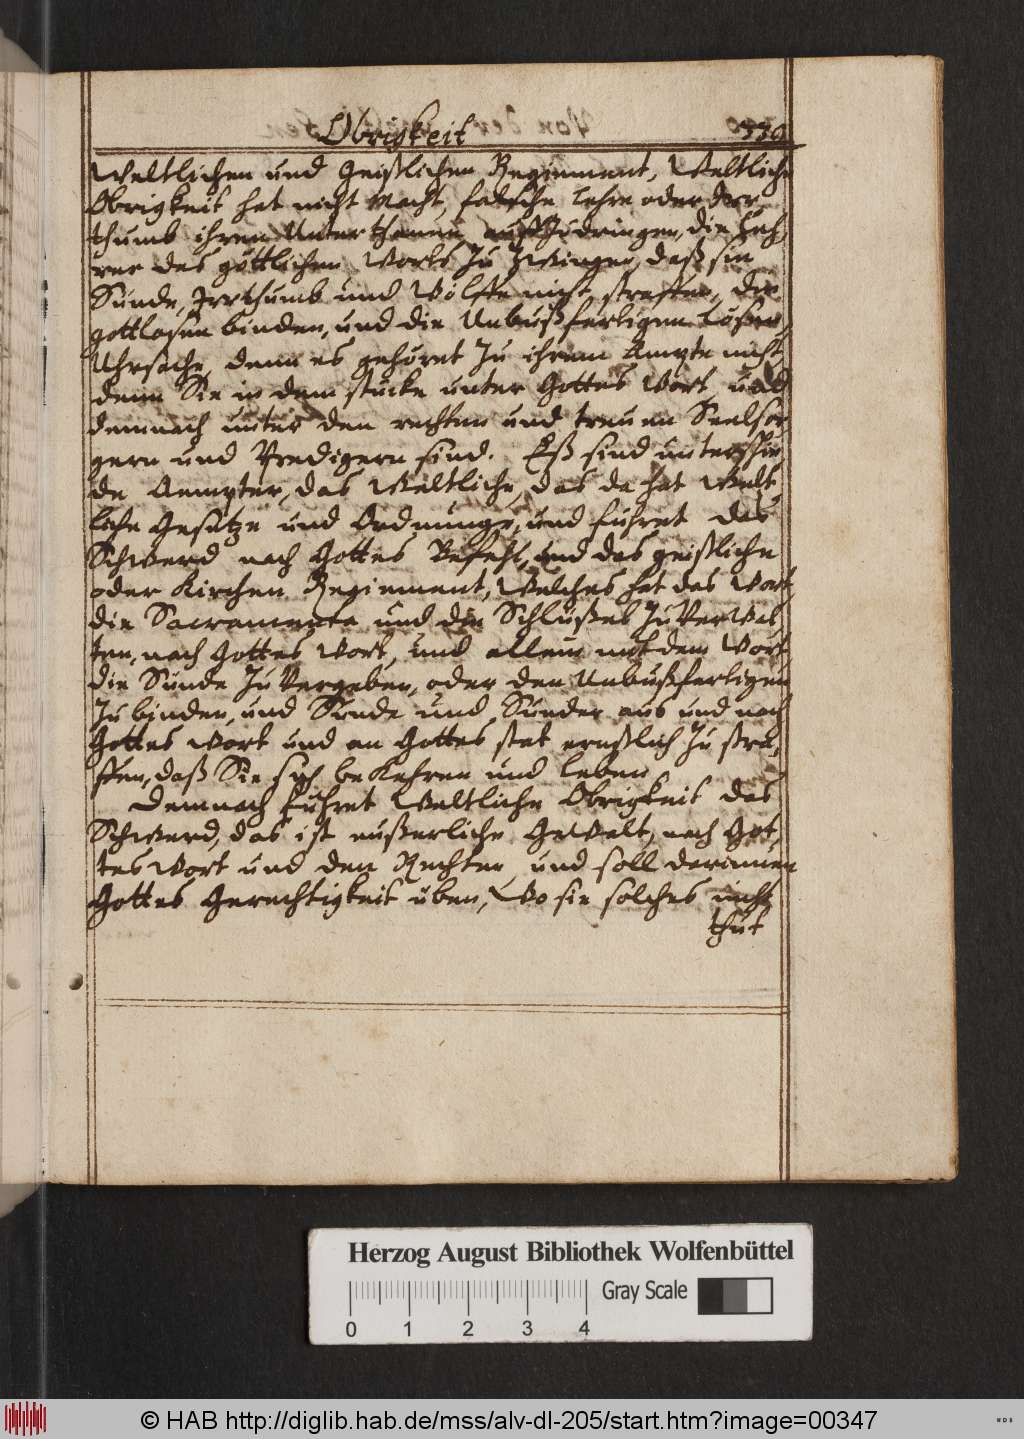 Obrigkeit 330
Weltlichen und Geistlichen Regiement, Weltliche
Obrigkeit hat nicht Macht, falsche Lehre oder Irr-
thumb ihren Unterthanen auffzudringen, die Leh,
rer des göttlichen Worts zu zwingen, daß sie
Sünde, Irrthumb und Wölffe nicht straffen, die
gottlosen binden, und die Unbußfertigen Lösen,
Uhrsache, denn es gehöret zu ihrem Ampte nicht,
denn Sie in dem stücke unter Gottes Wort, und
demnach unter den rechten und treuen Seelsor
gern und Predigern sind. Eß sind unterschie
de Aempter, das Weltliche, das da hat Welt
liche Gesetze und Ordnunge, und führet das
Schwerd nach Gottes Befehl, und das geistliche
oder Kirchen Regiement, Welches hat das Wort,
die Sacramenta und die Schlüßel zu Verwal,
ten, nach Gottes Wort, und allein mit dem Wort
die Sünde zu Vergeben, oder den Unbußfertigen
zu binden, und Sünde und Sünder aus und nach
Gottes Wort und an Gottes stat ernstlich zu stra,
ffen, daß Sie sich bekehren und leben.
Demnach führet Weltliche Obrigkeit das
Schwerd, das ist eußerliche Gewalt, nach Got,
tes Wort und den Rechten, und soll darinnen
Gottes Gerechtigkeit üben, Wo sie solches nicht
thut
Herzog August Bibliothek Wolfenbüttel
Gray Scale
0 1 2 3 4
© HAB http://diglib.hab.de/mss/alv-dl-205/start.htm?image=00347